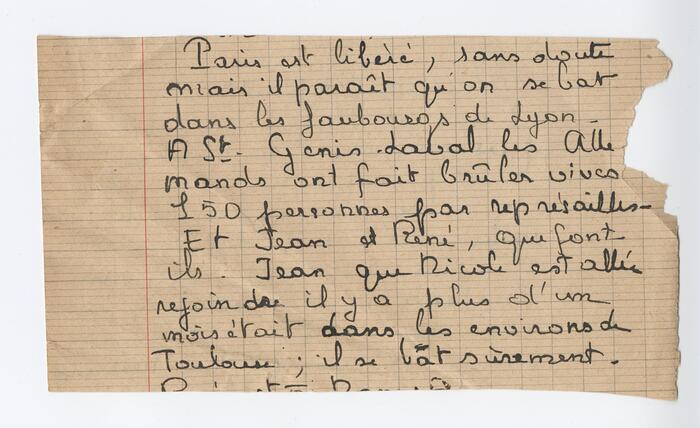 Paris est libéré, sans doute
mais il paraît qu'on se bat
dans les faubourgs de Lyon -
A St. Genis-Laval les Alle
mands ont fait brûler vives
150 personnes par représailles -
Et Jean et René, que font
ils. Jean que Nicole est allée
rejoindre il y a plus d'un
mois était dans les environs de
Toulouse ; il se bât sûrement.